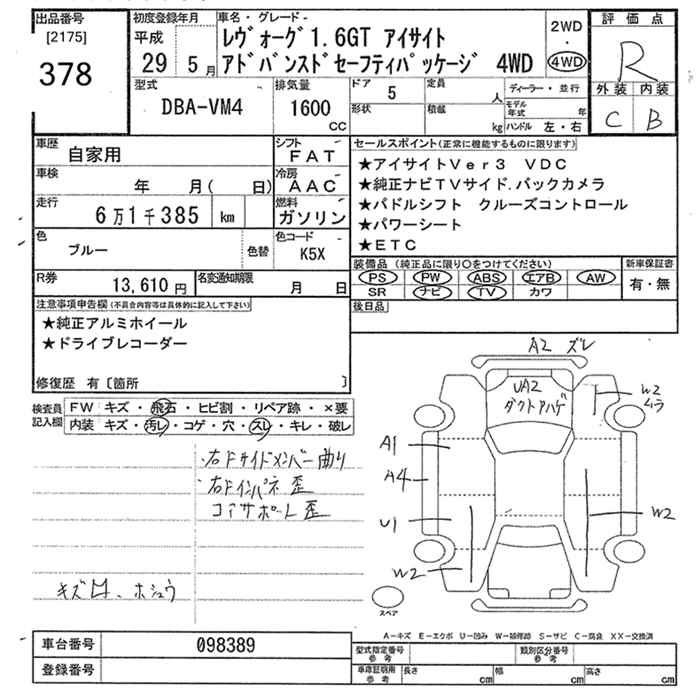 出品番号
[2175]
378
初度登録年月
平成
29 5月
車名・グレード
レヴォーグ1.6GT アイサイト
アドバンスドセーフティパッケージ 4WD
2WD
・
4WD
評価点
R
外装 内装
C B
型式
DBA-VM4
排気量
1600
CC
ドア 5
形状
定員 人
積載 kg
ディーラー・並行
モデル年式 年
ハンドル 左・右
車歴
自家用
シフト
FAT
車検 年 月( 日)
冷房
AAC
走行
6万1千385 km
燃料
ガソリン
色
ブルー
色替
色コード
K5X
R券
13,610円
名変通知期限
月 日
セールスポイント(正常に機能するものに限ります)
★アイサイトVer3 VDC
★純正ナビTVサイド.バックカメラ
★パドルシフト クルーズコントロール
★パワーシート
★ETC
装備品(純正品に限り○をつけてください)
PS PW ABS エアB AW
SR ナビ TV カワ
新車保証書
有・無
後日品
注意事項申告欄(不具合内容等は具体的に記入して下さい)
★純正アルミホイール
★ドライブレコーダー
修復歴 有〔箇所 〕
検査員記入欄
FW キズ・飛石・ヒビ割・リペア跡・×要
内装 キズ・汚レ・コゲ・穴・スレ・キレ・破レ
・右Fサイドメンバー曲り
・右Fインパネ歪
コアサポートL歪
A2 ズレ
UA2
ダクトハゲ
W2
ムラ
A1
A4
U1
W2
W2
スペア
A－キズ E－エクボ U－凹み W－補修跡 S－サビ C－腐食 XX－交換済
車台番号 098389
登録番号
型式指定番号
参考
類別区分番号
参考
車庫証明用
参考
長さ cm 幅 cm 高さ cm